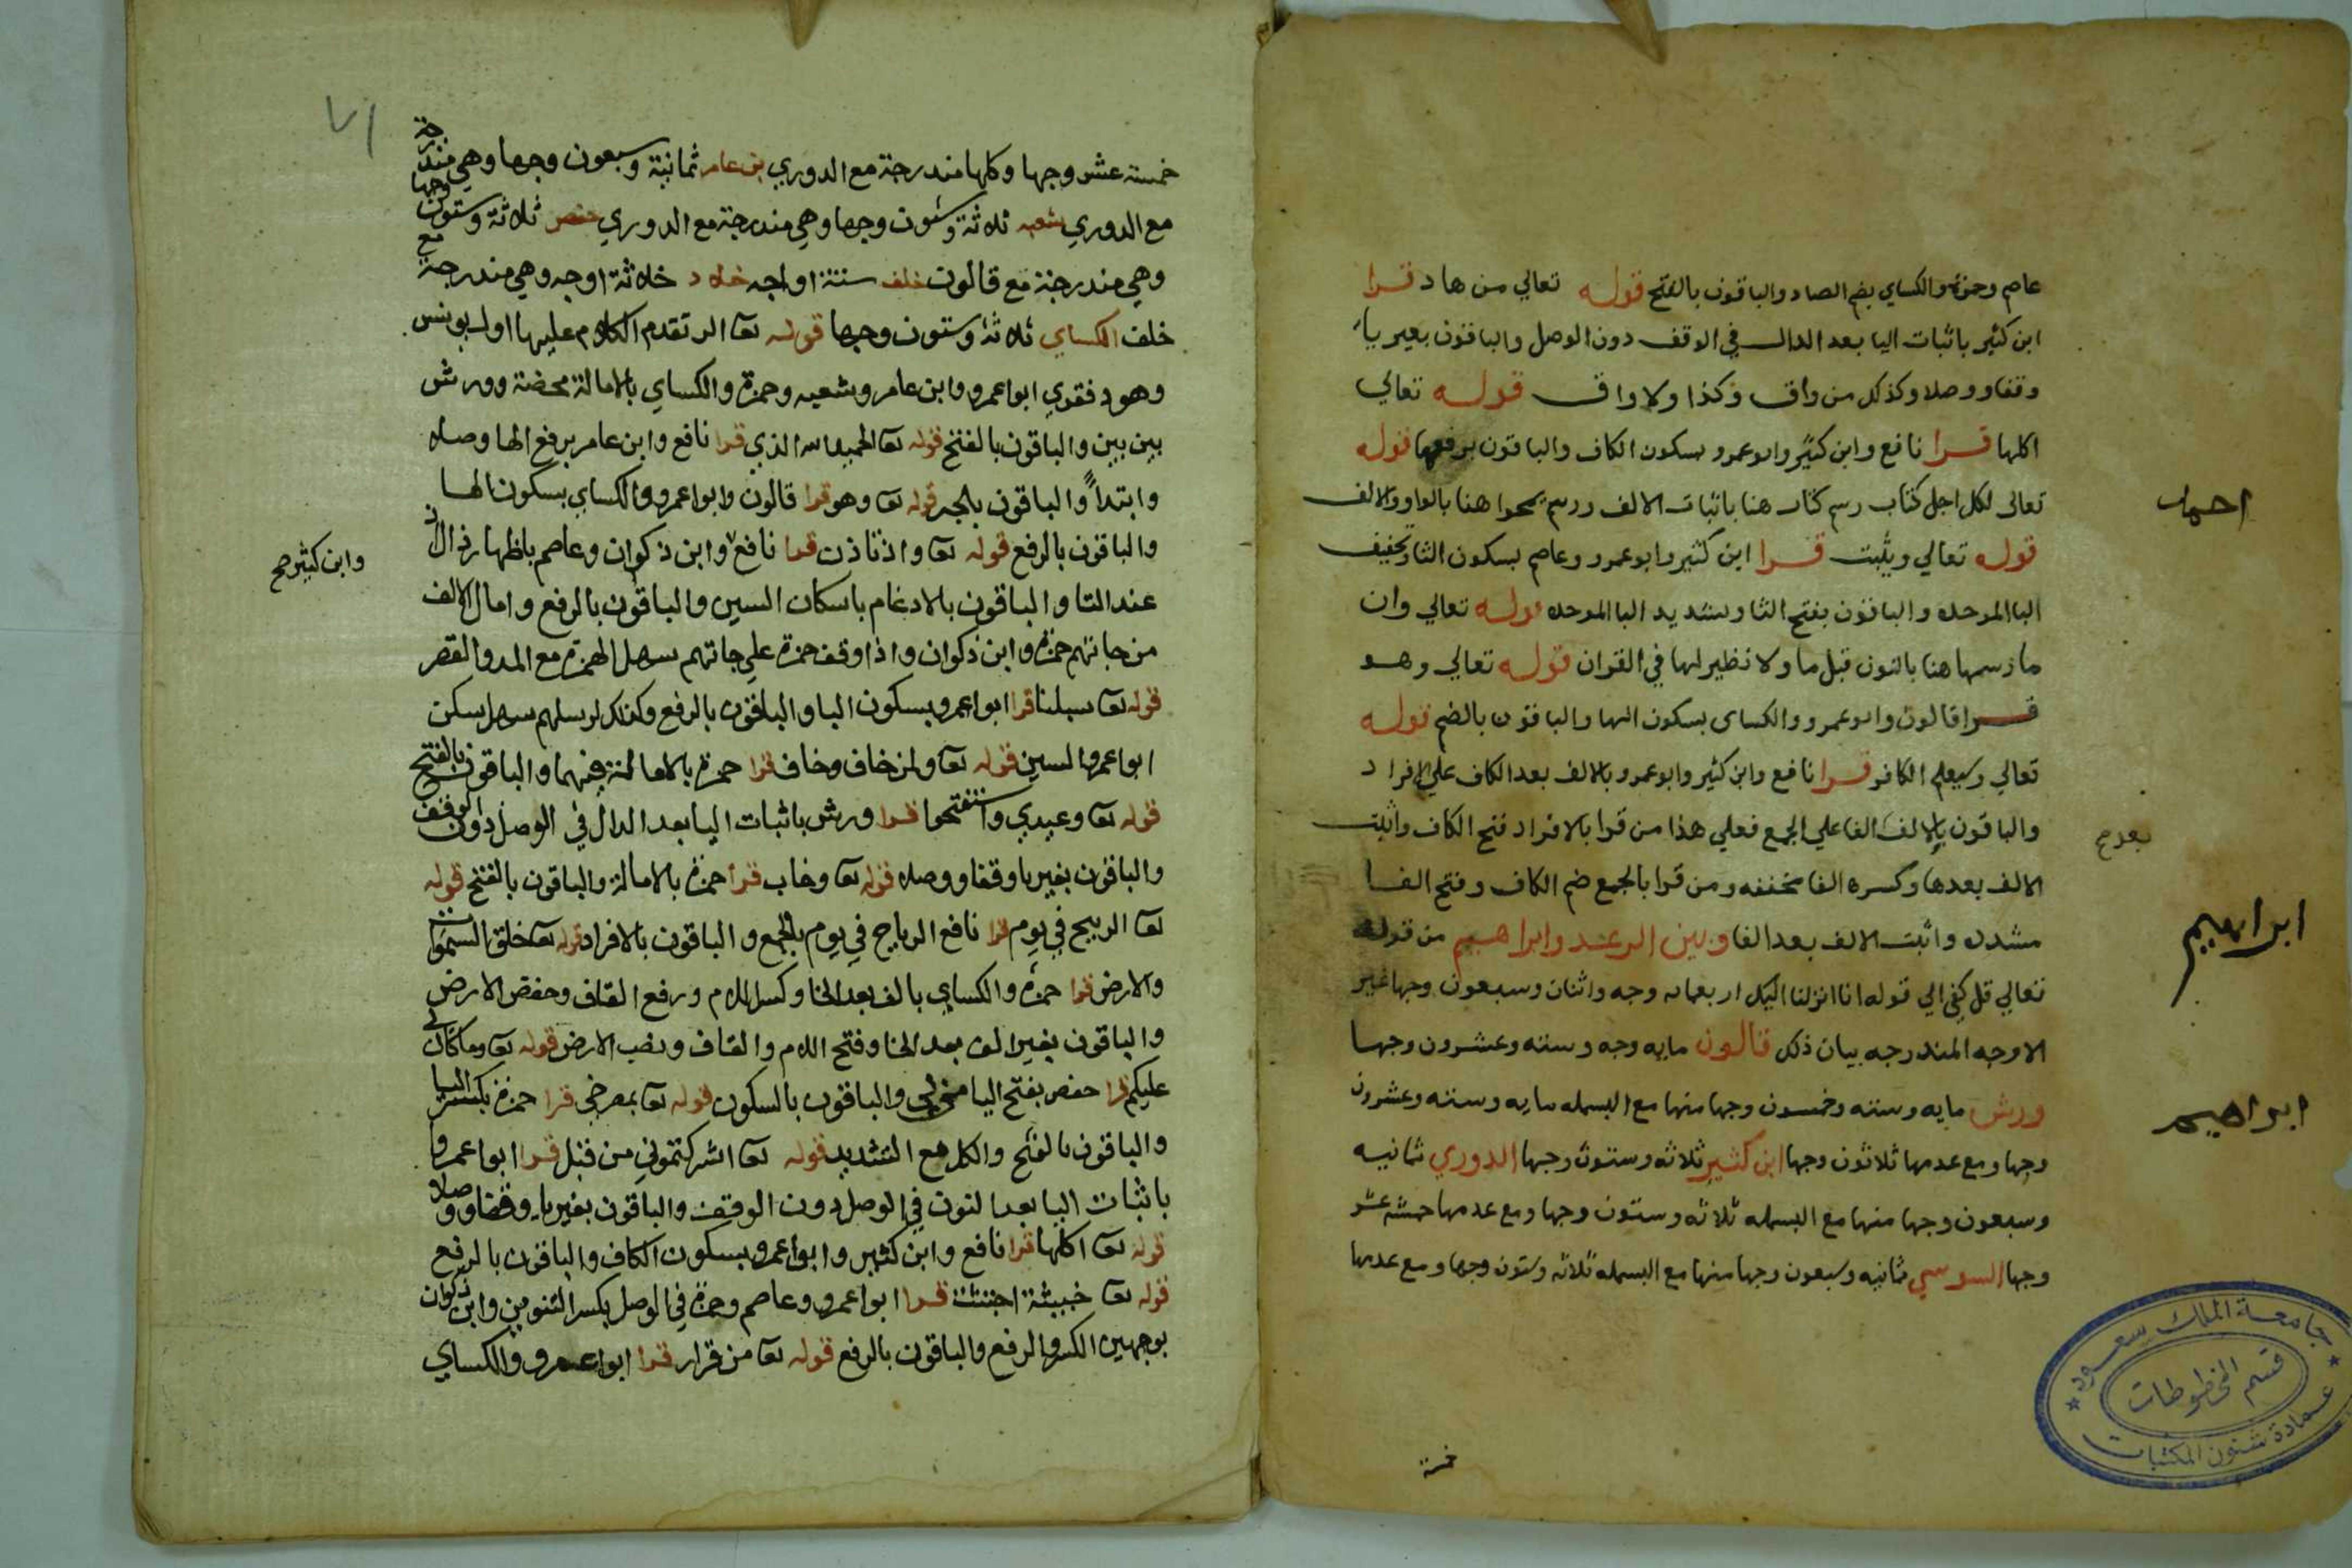 عاصم وحمزة والكساي بضم الصاد والباقون بالفتح قوله تعالي من هاد قرا
ابن كثير باثبات اليا بعد الدال في الوقف دون الوصل والباقون بغير ياء
وقفا ووصلا وكذلك من واق وكذا ولا واق قوله تعالي
اكلها قرا نافع وابن كثير وابو عمرو بسكون الكاف والباقون برفعها قوله
تعالى لكل اجل كتاب رسم كتاب هنا باثبات الالف ورسم يمحوا هنا بالواو والالف
قوله تعالي ويثبت قرا ابن كثير وابو عمرو وعاصم بسكون الثا وتخفيف
البا الموحده والباقون بفتح الثا وتشديد البا الموحده قوله تعالي وان
ما رسمها هنا بالنون قبل ما ولا نظير لها في القران قوله تعالي وهو
قرا قالون وابو عمرو والكساى بسكون الها والباقون بالضم قوله
تعالي وسيعلم الكافر قرا نافع وابن كثير وابو عمرو بالالف بعد الكاف علي الافراد
والباقون بالالف الفا علي الجمع فعلي هذا من قرا بالافراد فتح الكاف واثبت
الالف بعدها وكسره الفا مخففه ومن قرا بالجمع ضم الكاف وفتح الفا
مشدده واثبت الالف بعد الفا وبين الرعد وابراهيم من قوله
تعالي قل كفي الي قوله انا انزلنا اليك اربعمايه وجه واثنان وسبعون وجها غير
الاوجه المندرجه بيان ذلك قالون مايه وجه وسته وعشرون وجها
ورش مايه وسته وخمسون وجها منها مع البسمله مايه وسته وعشرون
وجها ومع عدمها ثلاثون وجها ابن كثير ثلاثه وستون وجها الدوري ثمانيه
وسبعون وجها منها مع البسمله ثلاثه وستون وجها ومع عدمها خمسة عشر
وجها السوسي ثمانيه وسبعون وجها منها مع البسمله ثلاثه وستون وجها ومع عدمها
خمسة
بعد صح
ابراهيم
ابراهيم
جامعة الملك سعود
قسم المخطوطات
عمادة شئون المكتبات
٧١
خمسة عشر وجها وكلها مندرجة مع الدوري بن عامر ثمانية وسبعون وجها وهي مندرجة
مع الدوري شعبه ثلاثة وستون وجها وهي مندرجة مع الدوري حفص ثلاثة وستون وجها
وهي مندرجة مع قالون خلف ستة اواجه خلاد ثلاثة اوجه وهي مندرجة مع
خلف الكساي ثلاثة وستون وجها قوله تعا الر تقدم الكلام عليها اول يونس
وهود فقري ابوا عمرو وابن عامر وشعبه وحمزة والكساي بالامالة محضة وورش
بين بين والباقون بالفتح قوله تعا الحميد الله الذي قرا نافع وابن عامر برفع الها وصلا
وابتداً والباقون بالجر قوله تعا وهو قرا قالون وابوا عمرو والكساي بسكون الها
والباقون بالرفع قوله تعا واذ تاذن قرا نافع وابن ذكوان وعاصم باظهار ذال اذ
عند التا والباقون بالادغام باسكان السين والباقون بالرفع وامال الالف
من جاتهم حمزة وابن ذكوان واذا وقف حمزة علي جاتهم سهل الهمزة مع المد والقصر
قوله تعا سبلنا قرا ابوا عمرو بسكون البا والباقون بالرفع وكذلك لرسلهم سهل سكن
ابوا عمرو السين قوله تعا ولمن خاف وخاف قرا حمزة بالامالة فيهما والباقون بالفتح
قوله تعا وعيدي واستفتحوا قرا ورش باثبات اليا بعد الدال في الوصل دون الوقف
والباقون بغير يا وقفا ووصلا قوله تعا وخاب قرا حمزة بالامالة والباقون بالفتح قوله
تعا الريح في يوم قرا نافع الرياح في يوم بالجمع والباقون بالافراد قوله تعا خلق السموات
والارض قرا حمزة والكساي بالف بعد الخا وكسر اللام ورفع القاف وخفض الارض
والباقون بغير الف بعد الخا وفتح اللام والقاف ونصب الارض قوله تعا وما كان لي
عليكم قرا حفص بفتح اليا من لي والباقون بالسكون قوله تعا بمصرخي قرا حمزة بكسر اليا
والباقون بالفتح والكل مع التشديد قوله تعا اشركتموني من قبل قرا ابوا عمرو
باثبات اليا بعد النون في الوصل دون الوقف والباقون بغير يا وقفا ووصلا
قوله تعا اكلها قرا نافع وابن كثير وابوا عمرو بسكون الكاف والباقون بالرفع
قوله تعا خبيثة اجتثت قرا ابوا عمرو وعاصم وحمزة في الوصل بكسر التنوين وابن ذكوان
بوجهين الكسر والرفع والباقون بالرفع قوله تعا من قرار قرا ابوا عمرو والكساي
وابن كثير صح